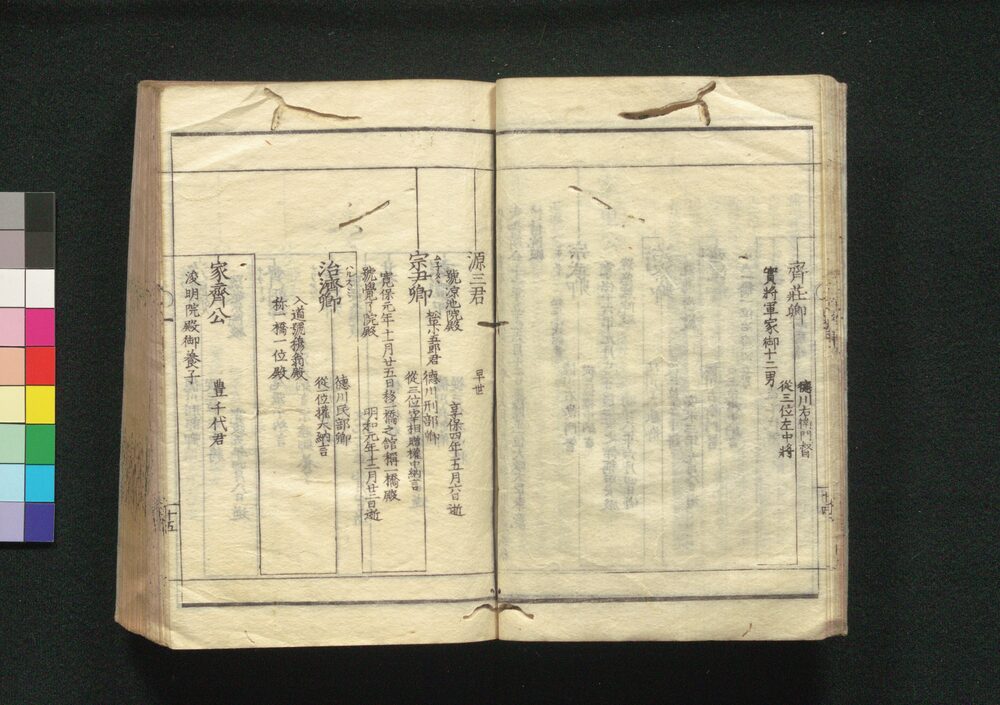 齊莊卿
德川右衛門督
從三位左中將
實將軍家御十二男
十四
源三君
早世
號凉池院殿
享保四年五月六日逝
宗尹卿
ムネタヽ
松平小五郎君
德川刑部卿
從三位宰相贈權中納言
寬保元年十一月廿五日移一橋之館稱一橋殿
號覺了院殿
明和元年十二月廿二日逝
治濟卿
ハルスミ
德川民部卿
從一位權大納言
入道號穆翁殿
称一橋一位殿
家齊公
豊千代君
浚明院殿御養子
十五